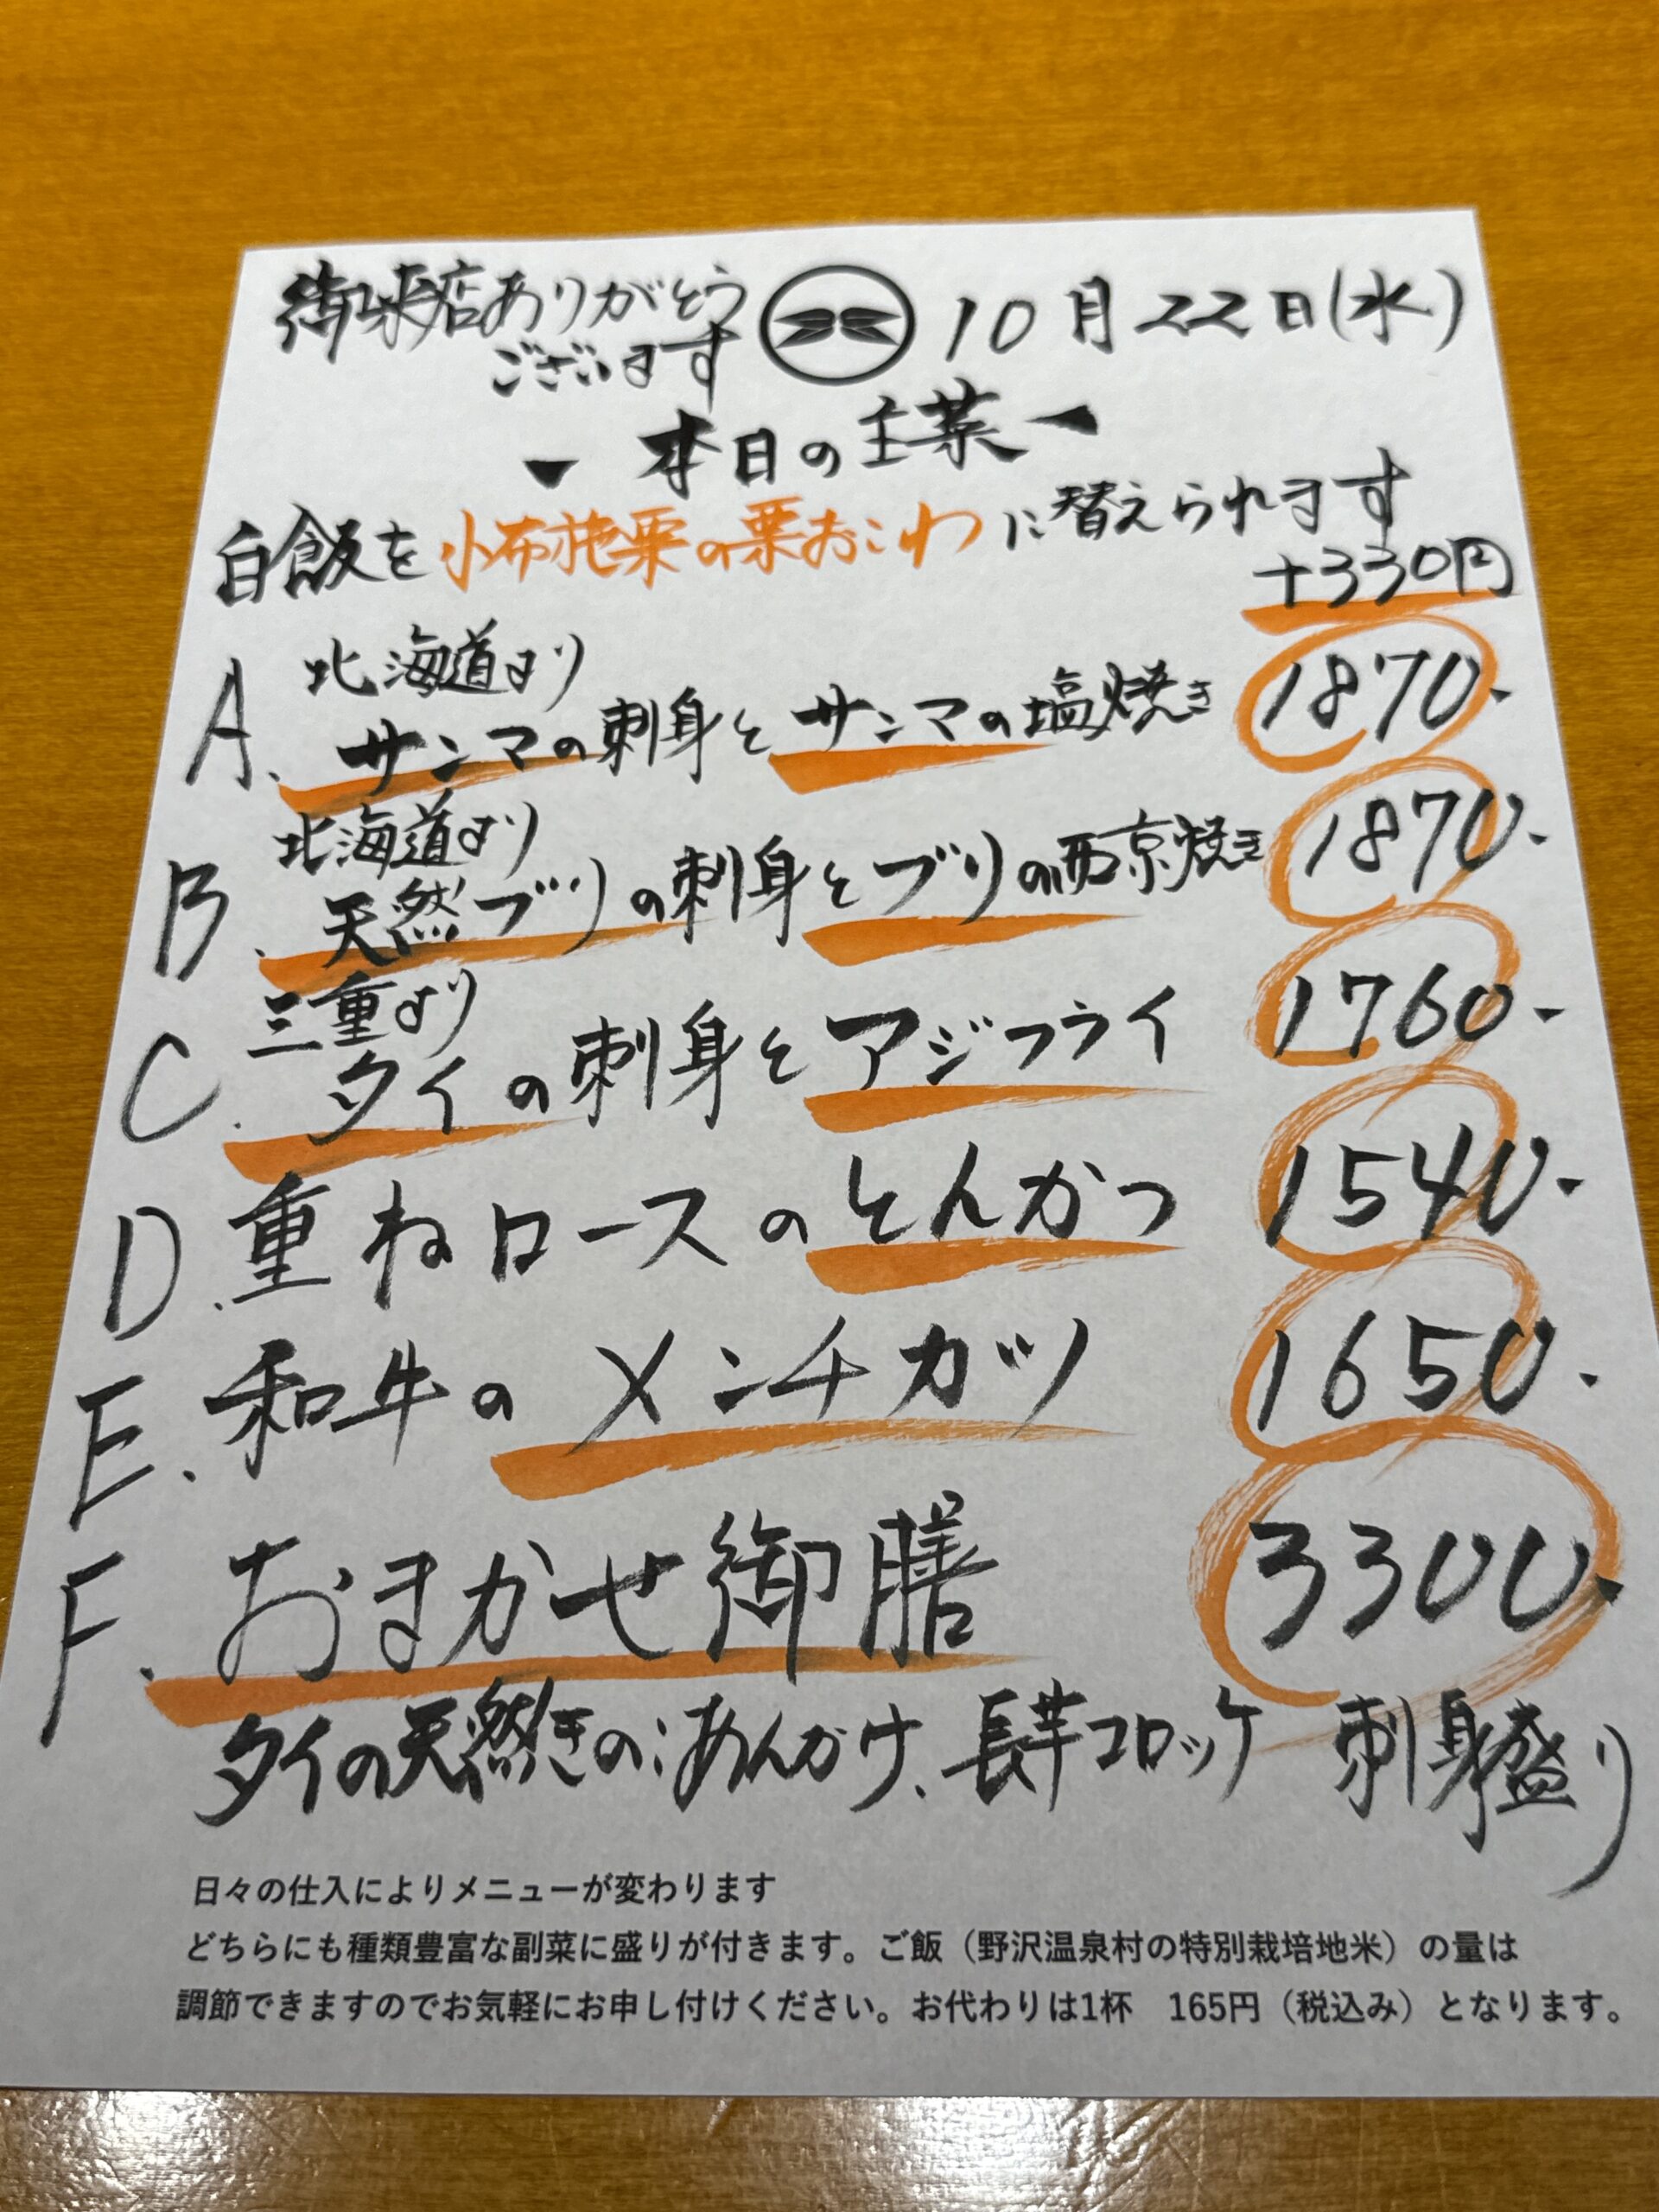 御来店ありがとう
ございます
10月22日(水)
本日の主菜
白飯を小布施栗の栗おこわに替えられます
+330円
北海道より
A. サンマの刺身とサンマの塩焼き 1870.-
北海道より
B. 天然ブリの刺身とブリの西京焼き 1870.-
三重より
C. タイの刺身とアジフライ 1760.-
D. 重ねロースのとんかつ 1540.-
E. 和牛のメンチカツ 1650.-
F. おまかせ御膳 3300.-
タイの天然きのこあんかけ、長芋コロッケ 刺身盛り
日々の仕入によりメニューが変わります
どちらにも種類豊富な副菜に盛りが付きます。ご飯（野沢温泉村の特別栽培地米）の量は
調節できますのでお気軽にお申し付けください。お代わりは1杯　165円（税込み）となります。